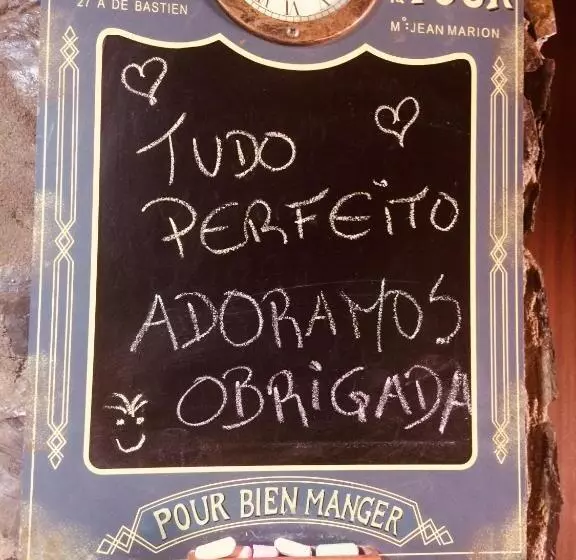 27 A DE BASTIEN
Mº: JEAN MARION
TUDO
PERFEITO
ADORAMOS
OBRIGADA
POUR BIEN MANGER